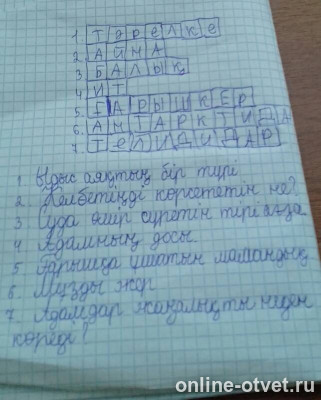 1. Тәрелке
2. Айна
3. Балық
4. Ит
5. Ғарышкер
6. Антарктида
7. Телидидар
1 Ыдыс аяқтың бір түрі
2. Келбетіңді көрсететін не?
3 Суда өмір сүретін тірі
4 Адамның досы.
5 Ғарышқа ұшатын мамандық
6. Мұзды жер
7 Адамдар жаңалықты неден
көреді?
online-otvet.ru